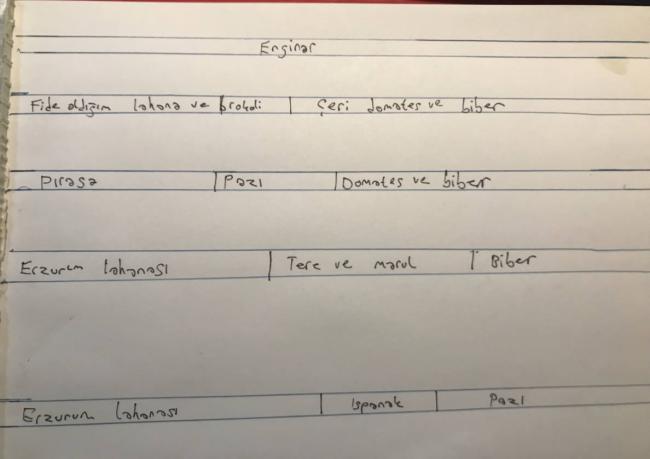 Enginar
Fide aldığım lahana ve brokoli | Çeri domates ve biber
Pırasa | Pazı | Domates ve biber
Erzurum lahanası | Tere ve marul | Biber
Erzurum lahanası | Ispanak | Pazı